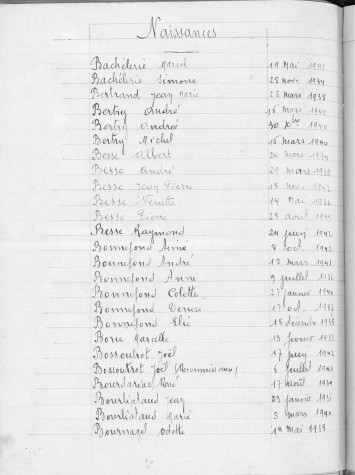 Naissances
Bachélerie Marcel 19 Mai 1941
Bachélerie Simone 25 nov. 1934
Bertrand Jean Marie 25 mars 1938
Bertry André 16 mars 1940
Bertry Andrée 30 Xbre 1940
Bertry Michel 16 mars 1940
Besse Albert 24 mars 1934
Besse André 29 mars 1932
Besse Jean Pierre 18 nov. 1942
Besse Nenette 14 Mai
Besse Pierre 28 août
Besse Raymond 24 juin 1942
Bonnefond Aimé 8 oct. 1942
Bonnefond André 15 mars 1941
Bonnefond Anne 9 juillet
Bonnefond Colette 27 janvier
Bonnefond Denise 17 oct. 1937
Bonnefond Elie 18 décembre 1938
Borie Marcelle 13 février 1935
Bossoutrot Joël 17 juin 1942
Bossoutrot Joël (Reconnaissance) 6 juillet 1942
Bourdarias René 17 août
Bourliataud Jean 23 janvier
Bourliataud Marie 5 mars 1940
Bournazel Odette 18 mai 1938